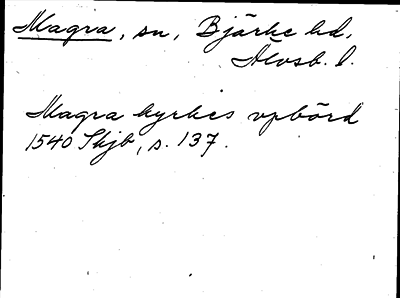 Magra, sn, Bjärke hd.
Älvsb. l.
Magra kyrkes vpbörd
1540 Skjb, s. 137.